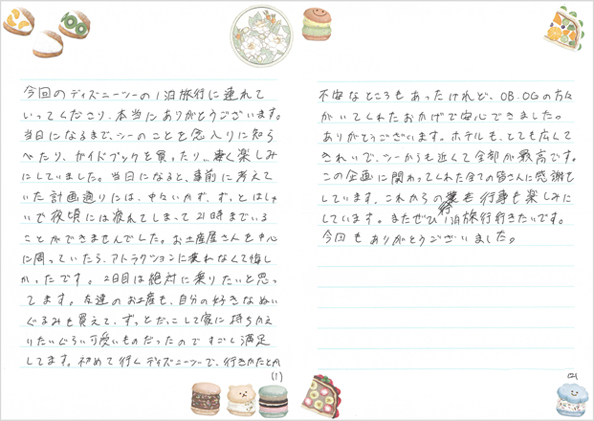 今回のディズニーシーの1泊旅行に連れて
いってくださり、本当にありがとうございます。
当日になるまで、シーのことを念入りに知ら
べたり、ガイドブックを買ったり、凄く楽しみ
にしていました。当日になると、事前に考えて
いた計画通りには、中々いかず、ずっとはしゃ
いで夜頃には疲れてしまって21時までいる
ことができませんでした。お土産屋さんを中心
に周っていたら、アトラクションに乗れなくて悔し
かったです。2日目は絶対に乗りたいと思っ
てます。友達のお土産も、自分の好きなぬい
ぐるみも買えて、ずっとだっこして家に持ちかえ
りたいぐらい可愛いものだったのですごく満足
してます。初めて行くディズニーシーで、行きかたとか
(1)
不安なところもあったけれど、OB.OGの方々
がいてくれたおかげで安心できました。
ありがとうございます。ホテルも、とても広くて
きれいで、シーからも近くて全部が最高です。
この企画に関わってくれた全ての皆さんに感謝を
しています。これからの行事も楽しみに
しています。またぜひ1泊旅行行きたいです。
今回もありがとうございました。
(2)